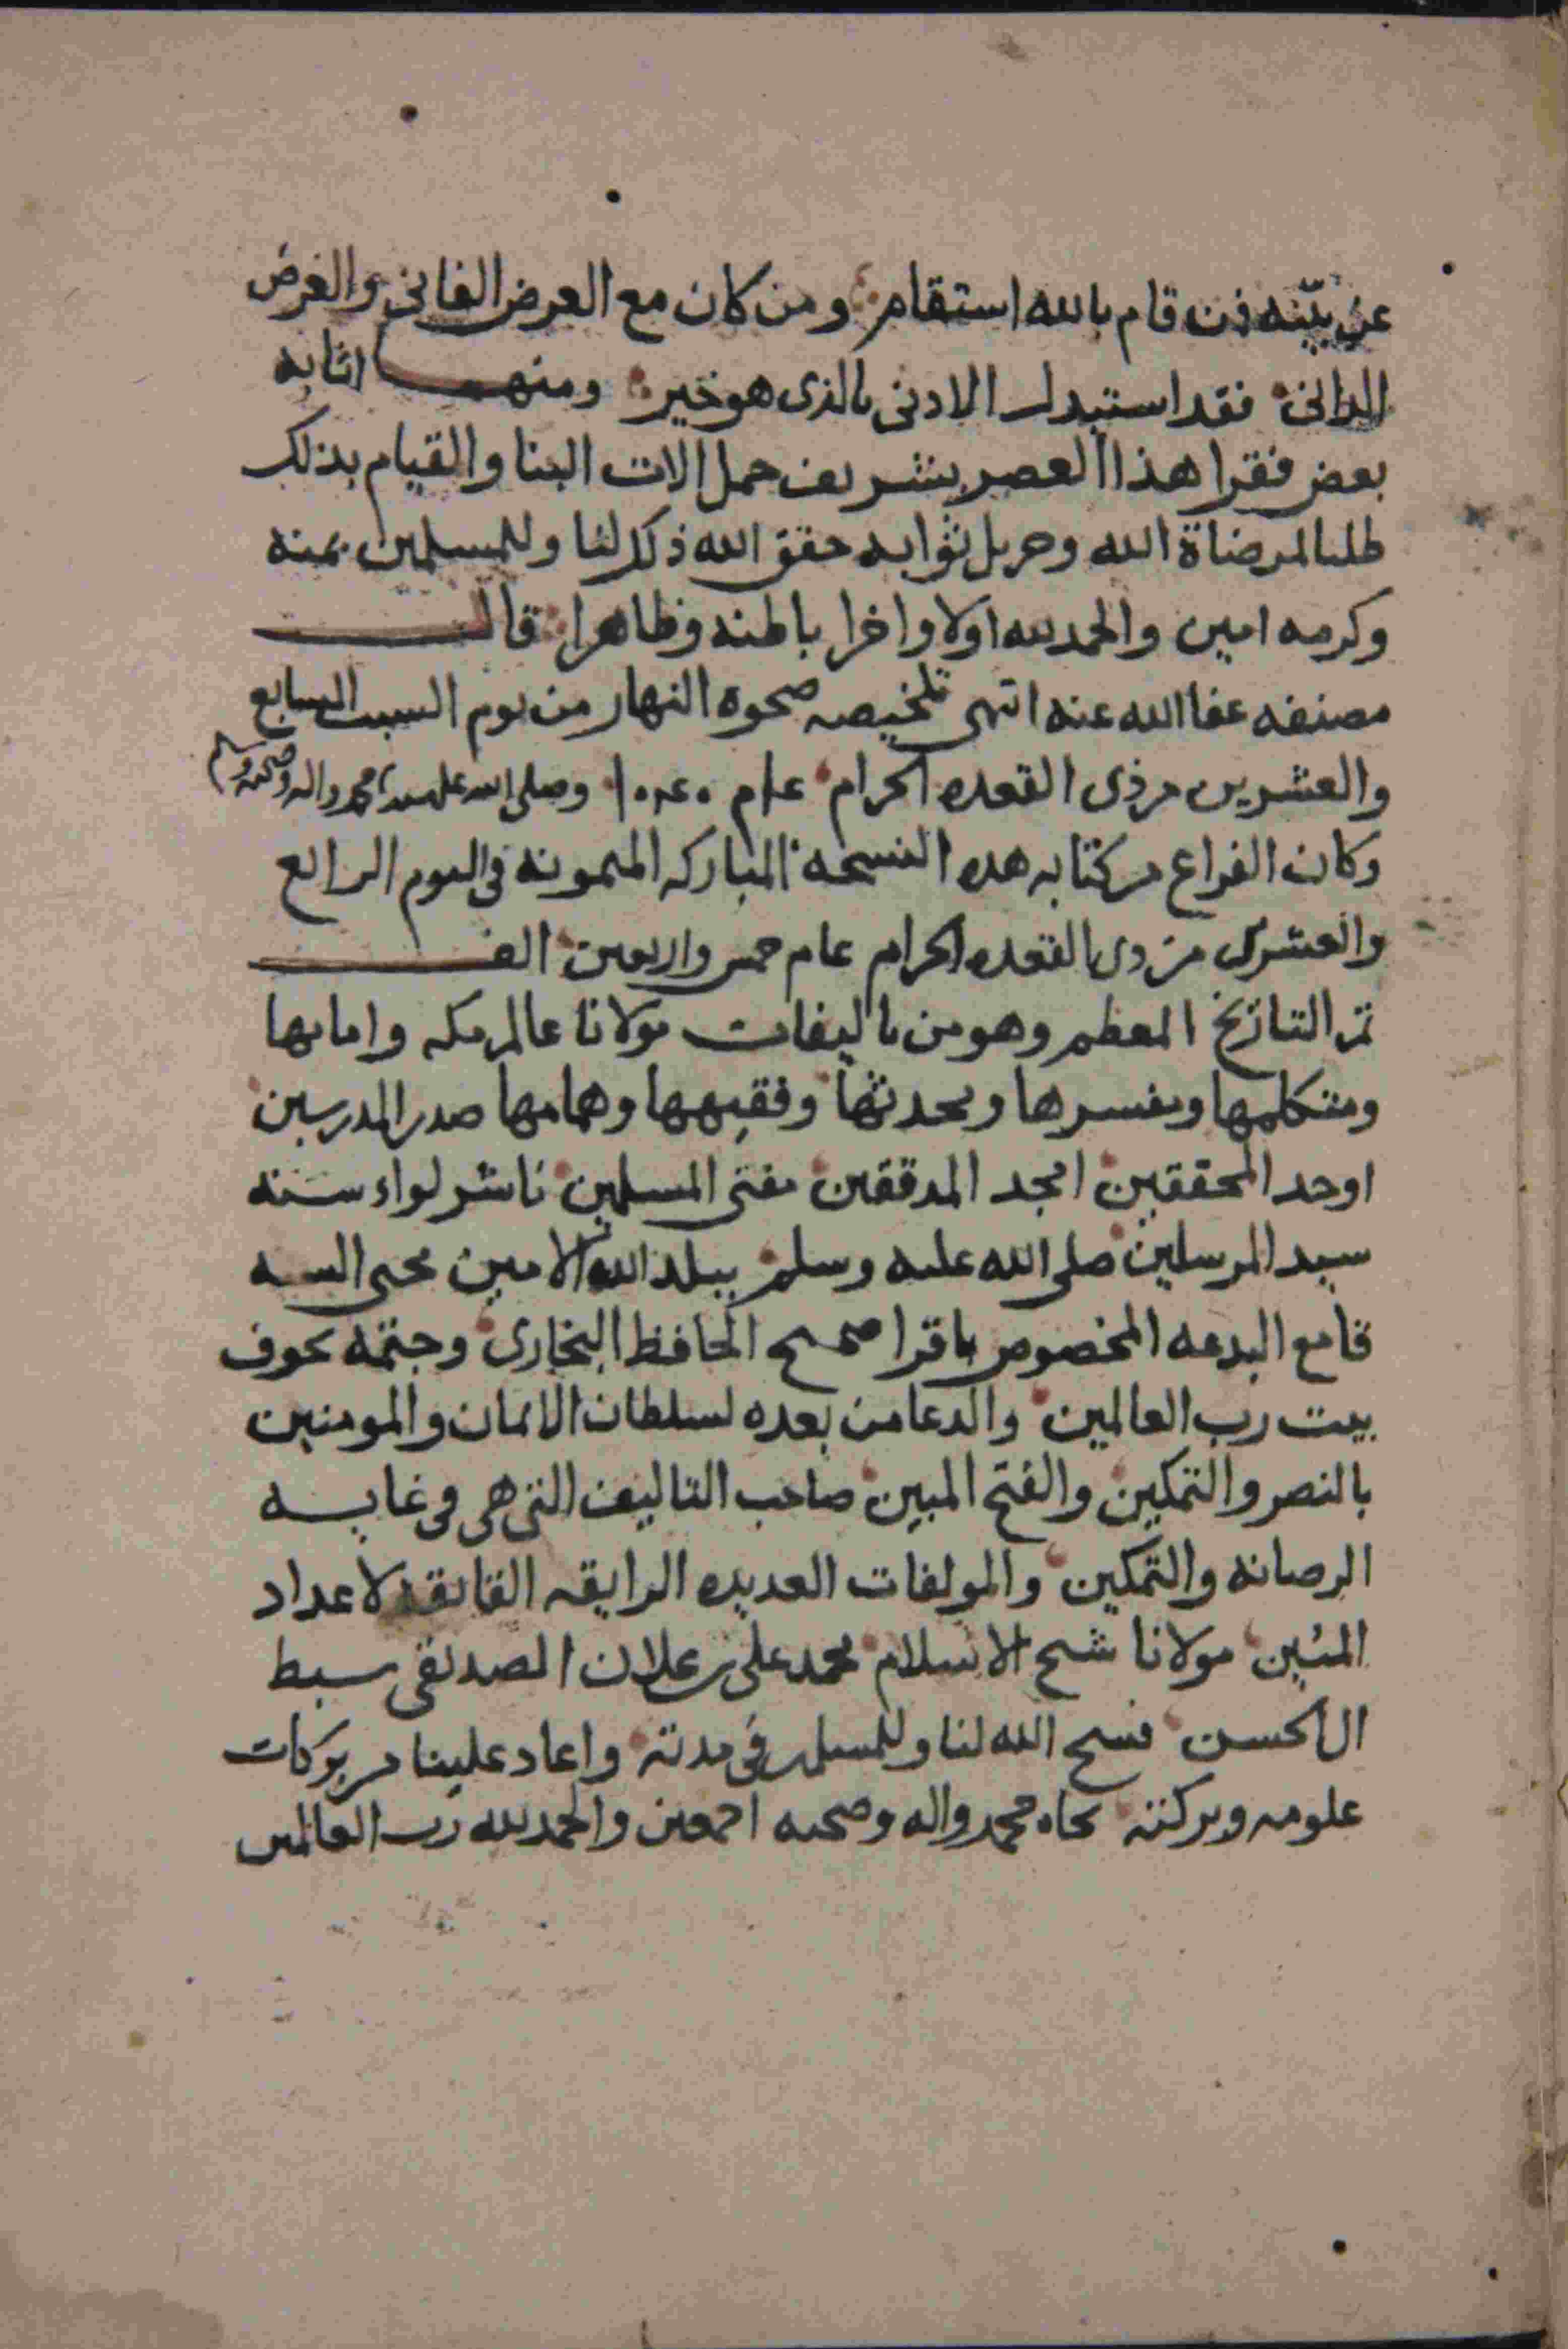 عن بيّنه فمن قام بالله استقام ومن كان مع العرض الفانى والغرض
الدانى فقد استبدل الادنى بالذى هو خير ومنها اثابه
بعض فقرا هذا العصر بتشريف حمل الات البنا والقيام بذلك
طلبا لمرضاة الله وجزيل ثوابه حقق الله ذلك لنا وللمسلمين بمنه
وكرمه امين والحمد لله اولا واخرا باطنه وظاهرا قال
مصنفه عفا الله عنه انتهى تلخيصه صحوة النهار من يوم السبت السابع
والعشرين من ذى القعده الحرام عام وصلى الله على سيدنا محمد واله وصحبه وسلم
وكان الفراغ من كتابه هذه النسخه المباركه الميمونه فى اليوم الرابع
والعشرين من ذى القعده الحرام عام خمس واربعين الف
تم التاريخ المعظم وهو من تاليفات مولانا عالم مكه وامامها
ومتكلمها ومفسرها ومحدثها وفقيهها وهمامها صدر المدرسين
اوحد المحققين امجد المدققين مفتى المسلمين ناشر لواء سنه
سيد المرسلين صلى الله عليه وسلم ببلد الله الامين محيى السنه
قامع البدعه المخصوص باقرا صحيح الحافظ البخارى وختمه بجوف
بيت رب العالمين والدعا من بعده لسلطان الايمان والمومنين
بالنصر والتمكين والفتح المبين صاحب التاليف التى هى فى غايه
الرصانه والتمكين والمولفات العديده الرايقه الفايقه لاعداد
المئين مولانا شيخ الاسلام محمد على بن علان الصديقى سبط
ال الحسن فسح الله لنا وللمسلمين فى مدته واعاد علينا من بركات
علومه وبركته بجاه محمد واله وصحبه اجمعين والحمد لله رب العالمين